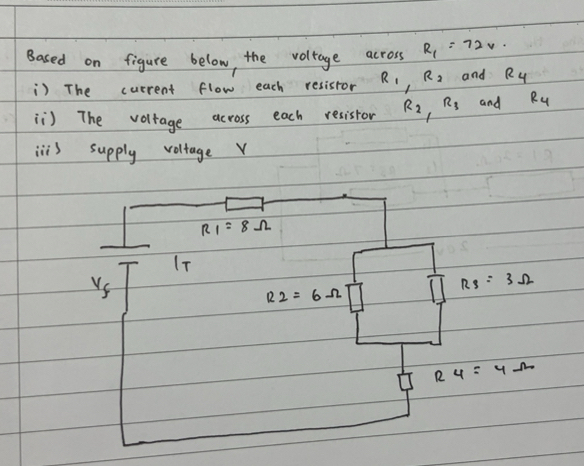 Based on figure below, the voltage across R1 = 72v.
i) The current flow each resistor R1, R2 and R4
ii) The voltage across each resistor R2, R3 and R4
iii) supply voltage V
R1 = 8 Ω
IT
Vs
R2 = 6 Ω
R3 = 3 Ω
R4 = 4 Ω